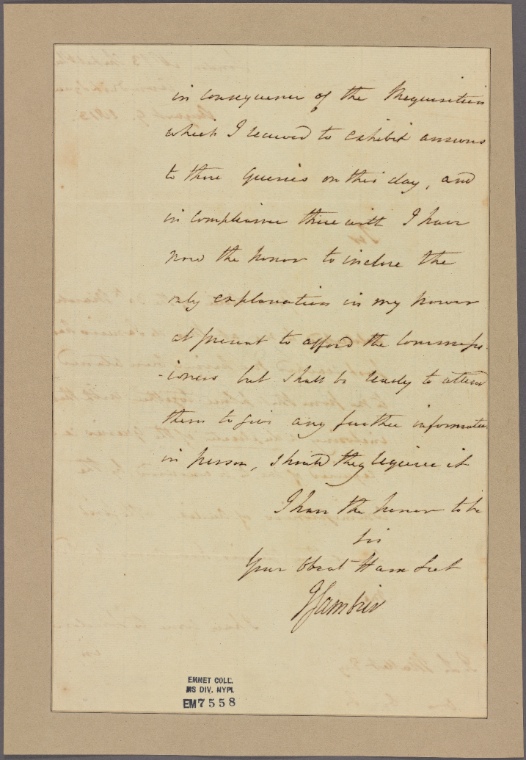 in consequence of the Requisition
which I received to exhibit answers
to these Queries on this day, and
in complience therewith I have
now the honor to inclose the
only explanation in my power
at present to afford the Commiss-
-ioners but shall be ready to attend
them to give any further information
in person, should they require it
I have the honor to be
Sir
Your Obedt Hum Sert
J Gambier
EMMET COLL.
MS DIV. NYPL
EM7558